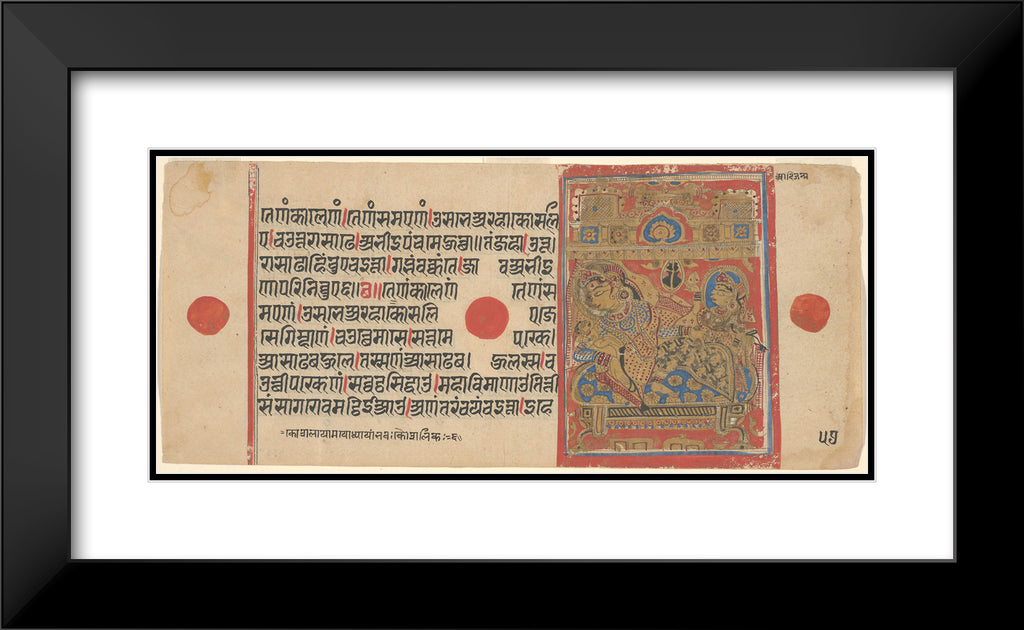 तेणंकालेणं।तेणंसमएणं।उसभेअरहाकोसलि
ए।चउउत्तरासाढे।अभीइपंचमेहोत्था॥तंजहा।उत्त
रासाढाहिंचुएचइत्ता।गब्भंवक्कंते।जावअभीइ
णापरिनिव्वुए॥३॥तेणंकालेणं तेणंस
मएणं।उसभेअरहाकोसलिए जे
सेगिम्हाणं।चउत्थेमासे।सत्तमे पक्खे
आसाढबहुले।तस्सणंआसाढब हुलस्स।च
उत्थीपक्खेणं।सव्वट्ठसिद्धाउ।महाविमाणाउतित्ती
संसागरोवमट्ठिईआउ।अणंतरंचयंचइत्ता।इहे